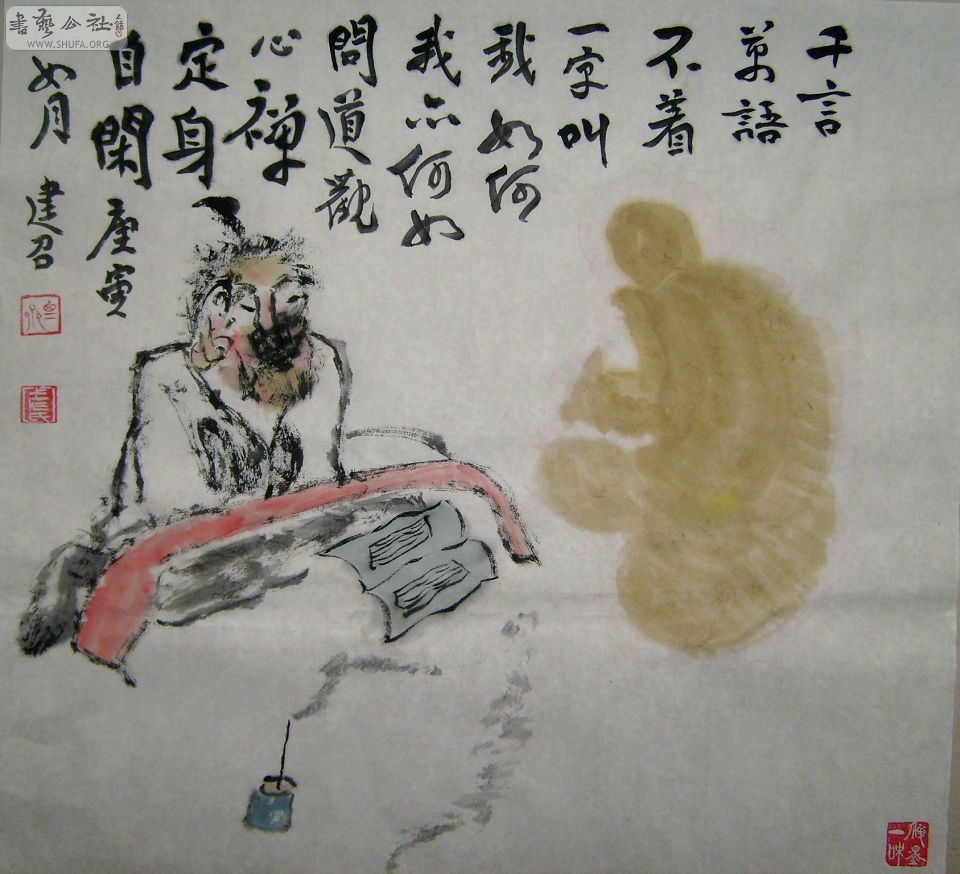 千言
萬語
不着
一字叫
我如何
我亦何如
問道觀
心禪
定身
自閑庚寅
如月建召
書藝公社
WWW.SHUFA.ORG
禪墨
一味